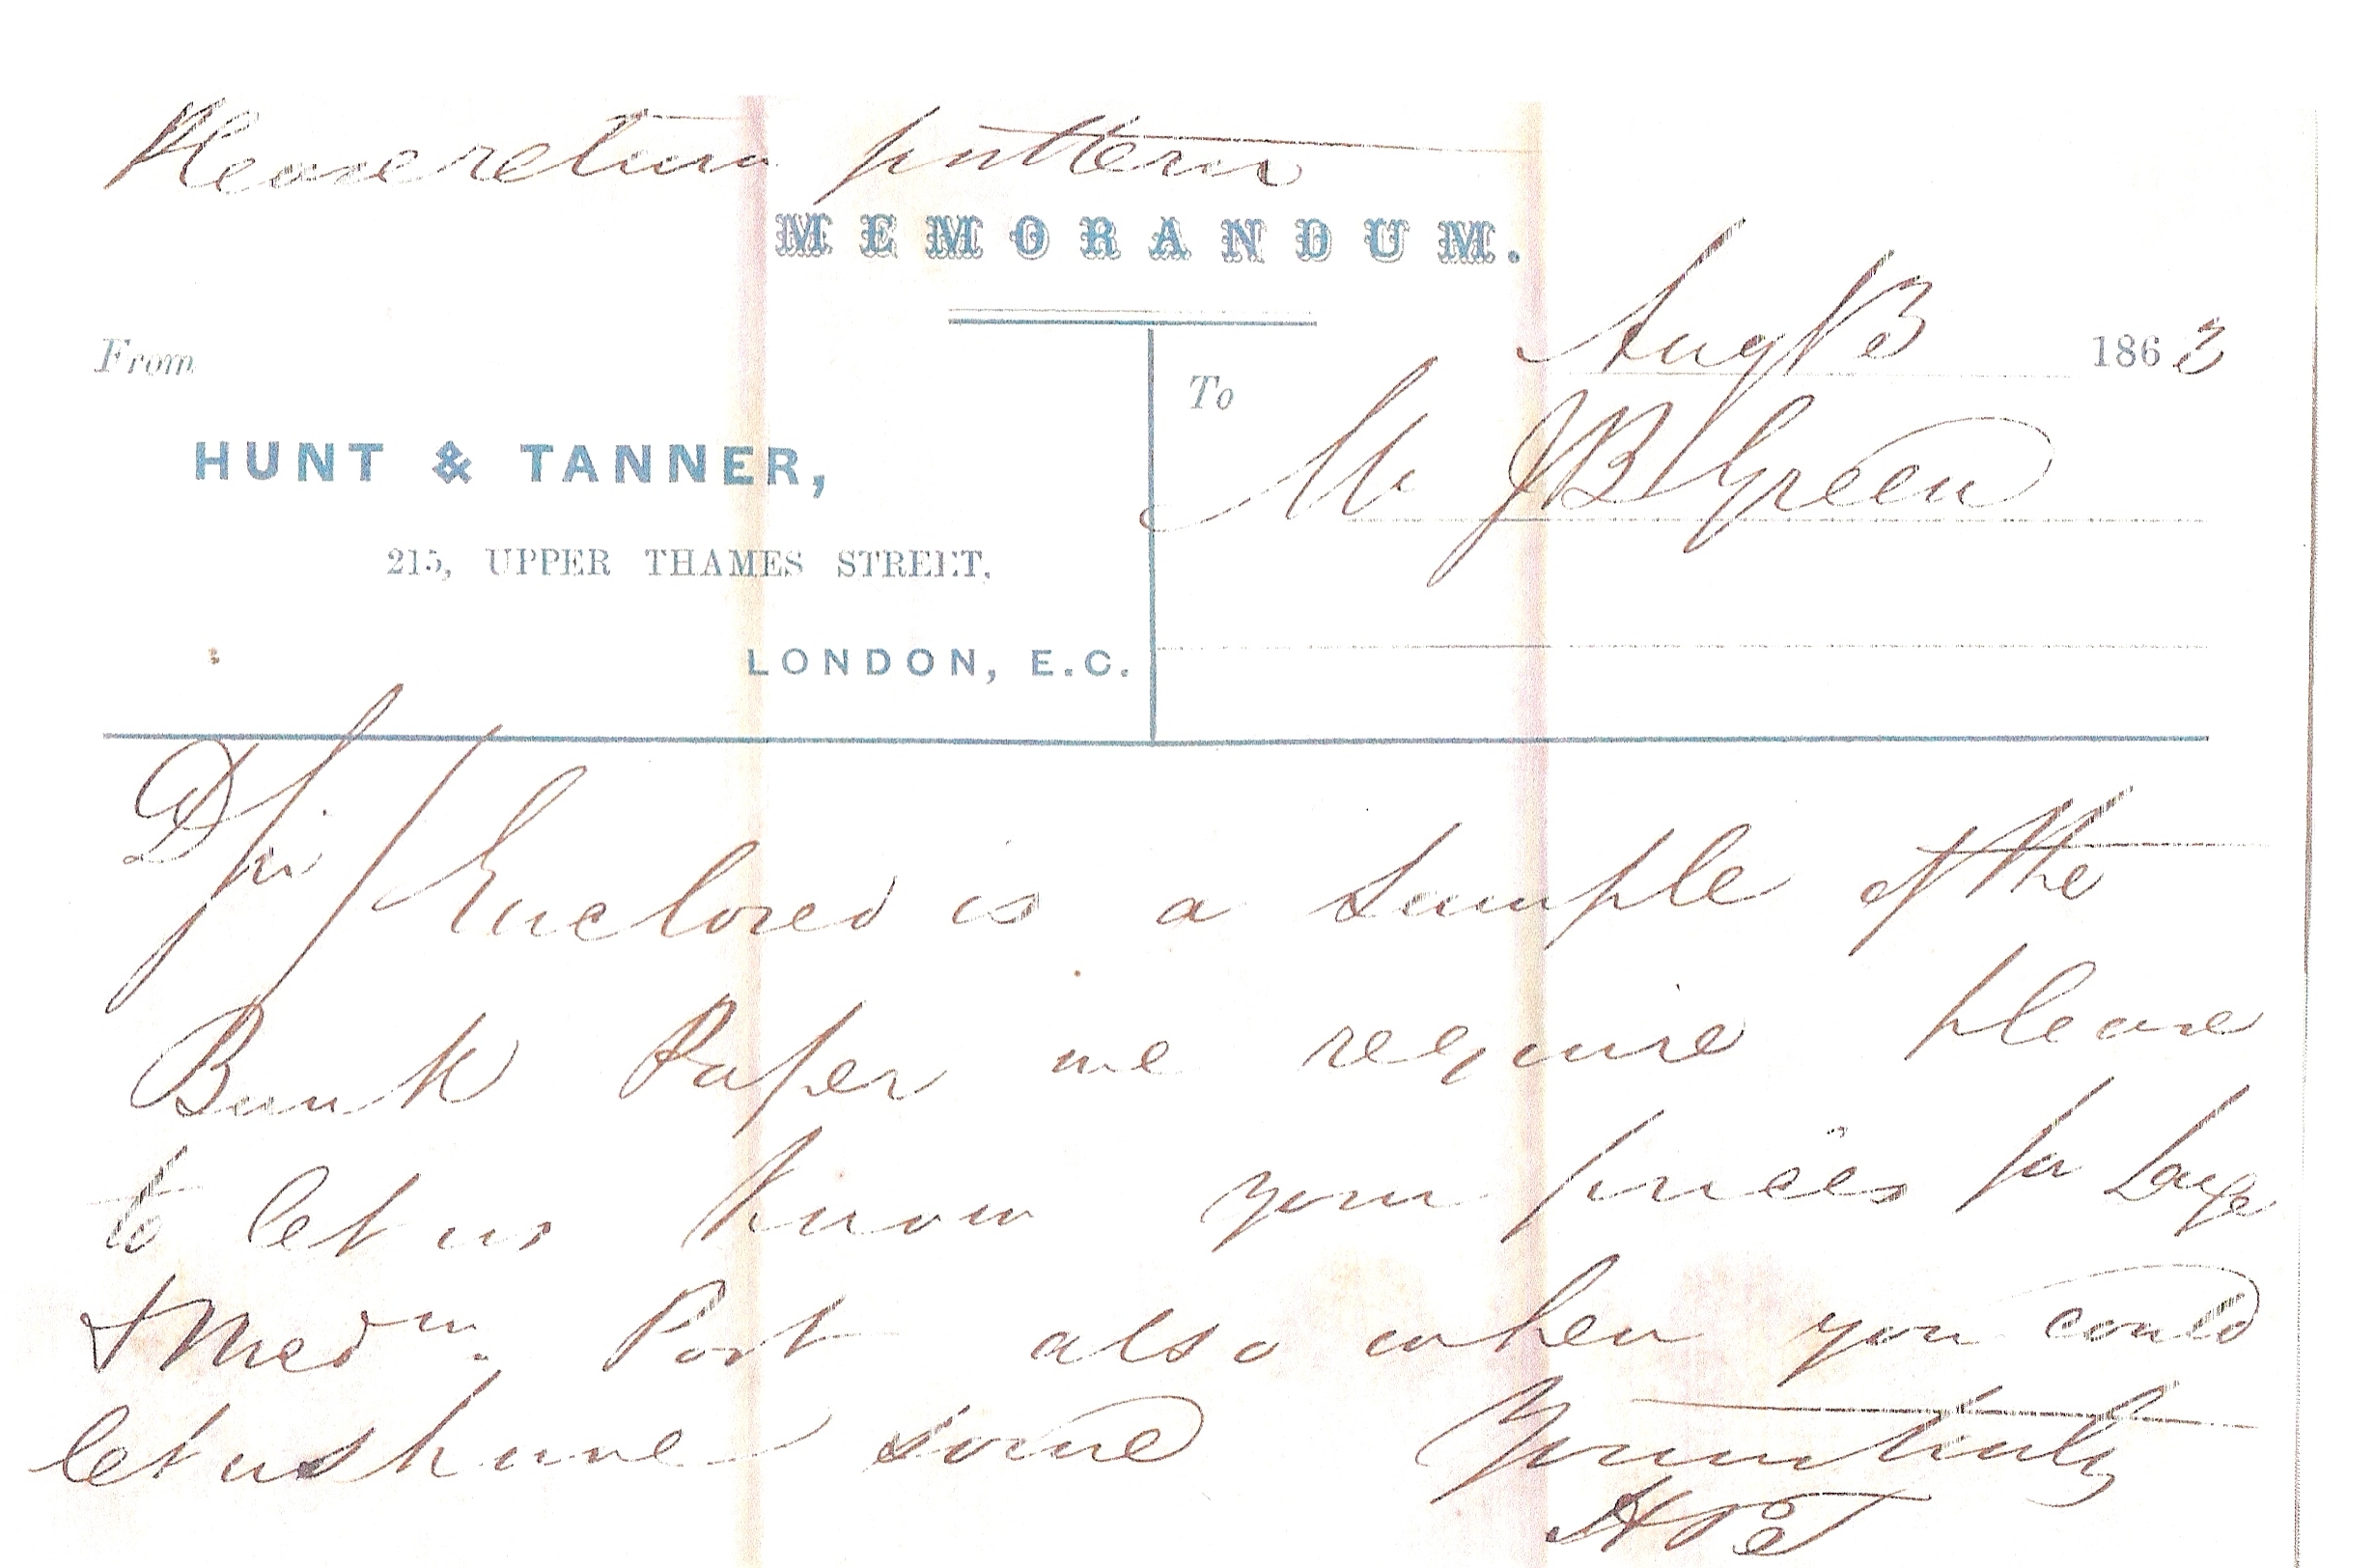 Please return pattern
MEMORANDUM.
Augt 3 1863
From
To
Mr J B Green
HUNT & TANNER,
215, UPPER THAMES STREET,
LONDON, E.C.
D Sir / Enclosed is a Sample of the
Bank Paper we require please
to let us know your prices for Large
& Medm Post also when you could
let us have some Yours truly
H & T